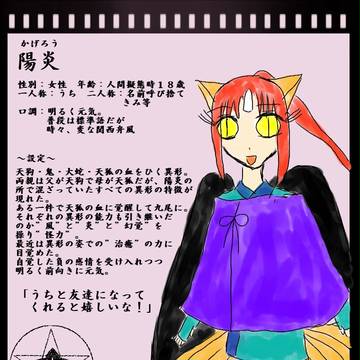 かげろう
陽炎
性別：女性　年齢：人間擬態時１８歳
一人称：うち　二人称：名前呼び捨て
きみ等
口調：明るく元気。
普段は標準語だが
時々、変な関西弁風
～設定～
天狗・鬼・大蛇・天狐の血をひく異形。
両親は父が天狗で母が天狐だが、陽炎の
所で混ざっていたすべての異形の特徴が
現れた。
ある一件で天狐の血に覚醒して九尾に。
それぞれの異形の能力も引き継いだ
のか“風”と“炎”と“幻覚”を
操り“怪力”。
最近は異形の姿での“治癒”の力に
目覚めた。
自覚した負の感情を受け入れつつ
明るく前向きに元気。
「うちと友達になって
くれると嬉しいな！」